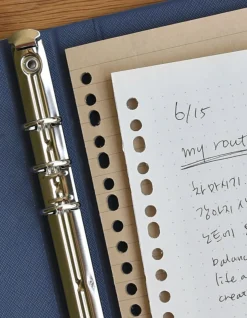 6/15
my rout
차마시기
강아지 시
노트에
balanc
life a
creat